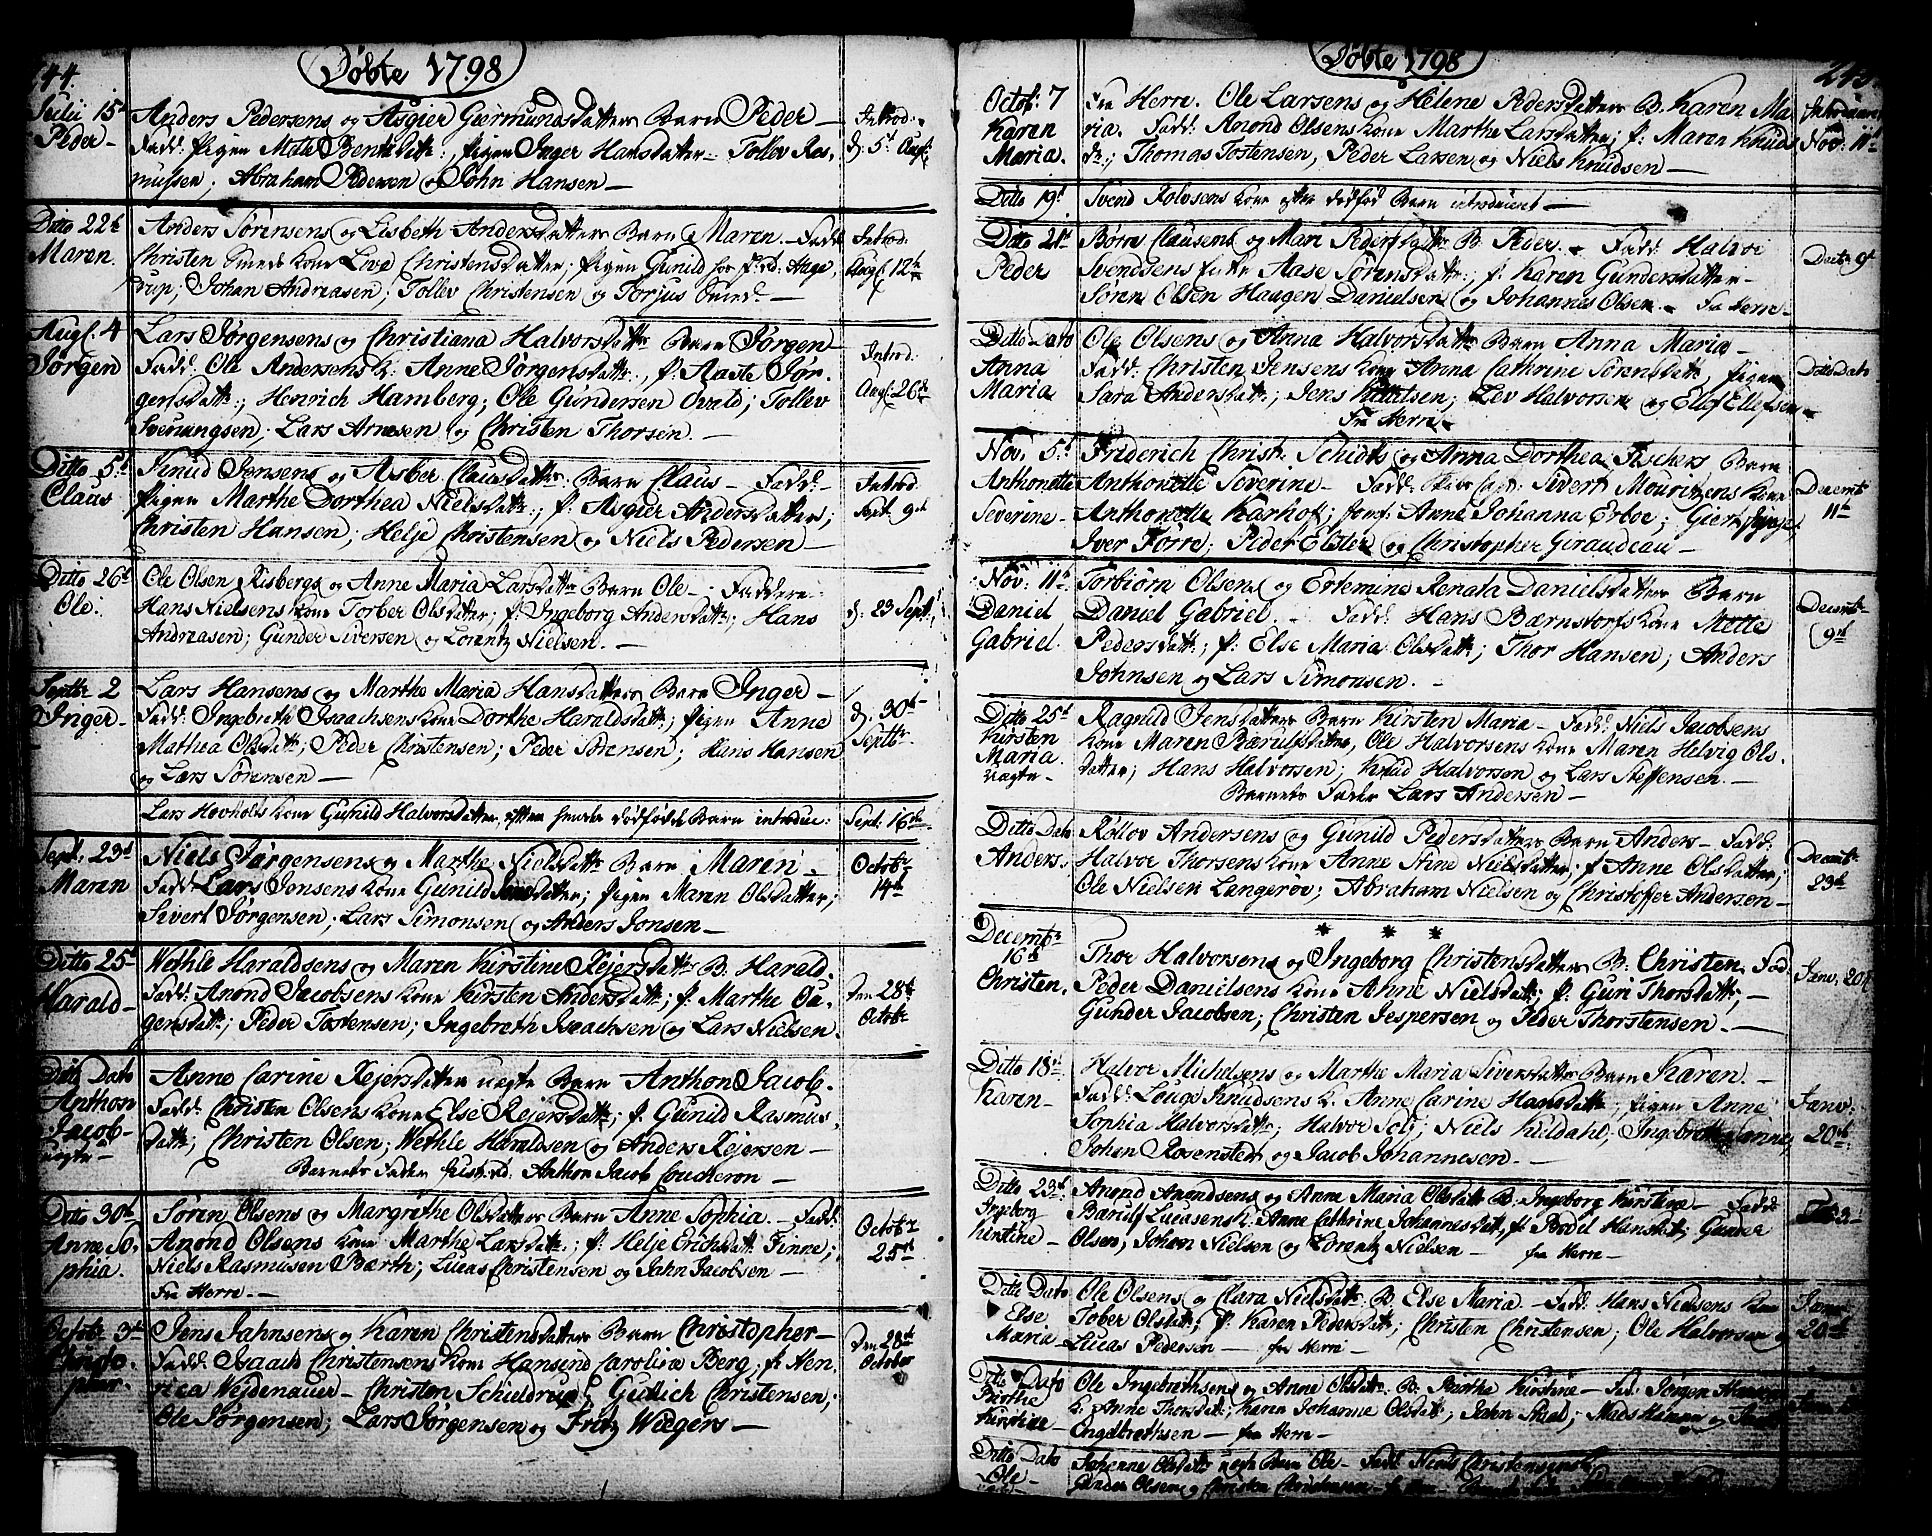 244.
Döbte 1798
Julii 15de
Peder
Anders Pedersens og Asgier Giermundsdatters Barn Peder
Fadd: Pigen Mole Bentsdatt: Pigen Inger Hansdatter Tollev Ras-
mussen; Abraham Pedersen og John Hansen
Introd:
d: 5t Aug:
Ditto 22de
Maren.
Anders Sørensens og Lisbeth Andersdatters Barn Maren. Fadd:
Christen Smeds Kone Live Christensdatter; Pigen Gunild
Johan Andreasen; Tollev Christensen og Torjus Smed
Introd:
Aug: 12te
Augl. 4
Jørgen
Lars Jørgensens og Christiana Halvorsdatts Barn Jørgen
Fadd: Ole Andersens K: Anne Jørgensdatt:, p: Aaste Jør-
gensdatt:; Henrich Hamberg; Ole Gundersen Ovald; Tollev
Sverungsen; Lars Arnesen og Christen Thorsen.
Introd:
Aug: 26te
Ditto 5t
Claus
Knud Jensens og Asber Clausdatts Barn Claus Fadd:
Pigen Marthe Dorthea Nielsdatt:; p: Asgier Andersdatter;
Christen Hansen; Helje Christensen og Niels Pedersen
Introd:
Sept: 9de
Ditto 26t
Ole:
Ole Olsen Risbergs og Anne Maria Larsdatts Barn Ole Faddere
Hans Nielsens Kone Torber Olsdatter; p: Ingeborg Andersdatt:; Hans
Andreasen; Gunder Siversen og Lorentz Nielsen.
d: 23 Sept:
Septbr 2
Inger
Lars Hansens og Marthe Maria Hansdatters Barn Inger
Fadd: Ingebreth Isaachsens Kone Dorthe Haraldsdatt:; Pigen Anne
Mathea Olsdatt; Peder Christensen; Peder Sørensen; Hans Hansen
og Lars Sørensen
d: 30te
Septbr.
Lars Hovholts Kone Gunild Halvorsdatter, efter hendes dødfødte Barn introduc:
Sept: 16de
Sept: 23d
Maren
Niels Jørgensens og Marthe Nielsdatts Barn Maren
Fadd: Lars Jonsens Kone Gunild datter; Pigen Maren Olsdatter;
Sivert Jørgensen; Lars Simonsen og Anders Jonsen
Octobr
14de
Ditto 25t
Harald
Wethle Haraldsens og Maren Kirstine Rejersdatts B: Harald.
Fadd: Anond Jacobsens Kone Kirsten Andersdatt:; p: Marthe Ou-
gensdatt:; Peder Tostensen; Ingebreth Isaachsen og Lars Nielsen
Den 28de
Octobr
Ditto Dato
Anthon
Jacob
uægte
Anne Carine Rejersdatter uægte Barn Anthon Jacob.
Fadd: Christen Olsens Kone Else Rejersdatt:; p: Gunild Rasmus-
datt; Christen Olsen; Wethle Haraldsen og Anders Rejersen
Barnets Fader Anthon Jacob Coucheron
Ditto 30te
Anne So-
phia.
Søren Olsens og Margrethe Olsdatters Barn Anne Sophia. Fadd:
Anond Olsens Kone Marthe Larsdatt:; p: Helje Erichsdatt: Finne;
Niels Rasmusen Barth; Lucas Christensen og Jahn Jacobsen
Fra Herre.
Octobr
25de
Octobr 3de
Christo-
pher.
Jens Jahnsens og Karen Christensdatters Barn Christopher
Fadd: Isaach Christensens Kone Hansine Carolina Berg; p: Hen-
rica Wejdenauer Christen Schieldrup; Gutlich Christensen;
Ole Jørgensen; Lars Jørgensen og Fritz Wiegers
Den 28de
October
Döbte 1798
245
Octob: 7
Karen
Maria.
Fra Herre. Ole Larsens og Helene Pedersdatters B. Karen Ma-
ria. Fadd: Anond Olsens Kone Marthe Larsdatter; p: Maren Knuds-
dr:; Thomas Tostensen, Peder Larsen og Niels Knudsen
Introduceret
Nov: 11te
Ditto 19d
Svend Rolvsens Kone efter dødfød Barn introduceret
Ditto 21de
Peder
Børre Clausens og Mari Pedersdatts B. Peder. Fadd: Halvor
Svendsens Aase Sørensdatt:; p: Karen Gundersdatter
Søren Olsen Haugen Danielsen og Johannes Olsen. Fra Herre
Decbr 9d
Ditto Dato
Anna
Maria
Ole Olsens og Anna Halvorsdatts Barn Anna Maria
Fadd: Christen Jensens Kone Anna Cathrine Sørensdatt; Pigen
Sara Andersdatt:; Jens Kittilsen; Lev Halvorsen og Ellof Ellefsen
Fra Herre
Ditto Dato
Nov: 5t
Anthonette
Severine
Friderich Christ: Schidts og Anna Dorthea Fischers Barn
Anthonette Severine Fadd: Capt: Sivert Mouritzens Kone
Anthonette Karhof; Jomf: Anne Johanna Erboe; Giert
Iver Førre; Peder Elster og Christopher Giraudeau
Decembr
11te
Nov: 11te
Daniel
Gabriel
Torbiørn Olsens og Ertemine Renata Danielsdatters Barn
Daniel Gabriel. Fadd: Hans Bærnstorfs Kone Mette
Pedersdatt; p: Else Maria Olsdatt; Thor Hansen; Anders
Johnsen og Lars Simonsen.
Decembr
9de
Ditto 25d
Kirsten
Maria
uægte
Ragnild Jensdatters Barn Kirsten Maria Fadd: Niels Jacobsens
Kone Maren Barulfsdatter, Ole Halvorsens Kone Maren Helvig Ols-
datter; Hans Halvorsen; Knud Halvorsen og Lars Steffensen.
Barnets Fader Lars Andersen
Ditto Dato
Anders.
Rollov Andersens og Gunild Pedersdatters Barn Anders Fadd:
Halvor Thorsens Kone Anne Stine Nielsdatter; p: Anne Olsdatter;
Ole Nielsen Langerøv; Abraham Nielsen og Christoffer Andersen
Decembr
23de
Decembr
16de
Christen.
* * *
Thor Halvorsens og Ingeborg Christensdatters B: Christen. Fad:
Peder Danielsens Kone Anne Nielsdatt; p: Guri Thorsdatt;
Gunder Jacobsen; Christen Jespersen og Peder Thorstensen
Janv: 20de
Ditto 18de
Karen
Halvor Michelsens og Marthe Maria Siversdatters Barn Karen.
Fadd: Louge Knudsens K. Anne Carine Hansdatt; Pigen Anne
Sophia Halvorsdatt; Halvor Solj; Niels Kildahl; Ingebreth
Johan Rosensted og Jacob Johannesen
Janv:
20de
Ditto 23de
Ingeborg
Kirstine
Anond Anondsens og Anne Maria Olsdatt B. Ingeborg Kirstine Fadd
Barulf Lucasens K: Anne Cathrine Johannesdat; p: Bodil Hansdat; Gunder
Olsen; Johan Nielsen og Lorentz Nielsen fra Herre
Ditto Dato
Else
Maria
Ole Olsens og Clara Nielsdatt: B. Else Maria. Fadd: Hans Nielsens Kone
Tober Olsdatt; p: Karen Pedersdatt; Christen Christensen; Ole Halvorsen og
Lucas Pedersen fra Herre
Janv:
20de
Ditto Dato
Birthe
Kirstine
Ole Ingebrethsens og Anne Olsdatt: B. Birthe Kirstine Fad: Jørgen Hansens
K: Anne Thorsdatt; Karen Johanne Olsdatt; Jahn Mads Hansen og
Engebrethsen fra Herre
Ditto Dato
Ole
Johanne Olsdatts uægte Barn Ole Fadd: Niels Christensens K.
Gunder Olsen og Christen Christensen